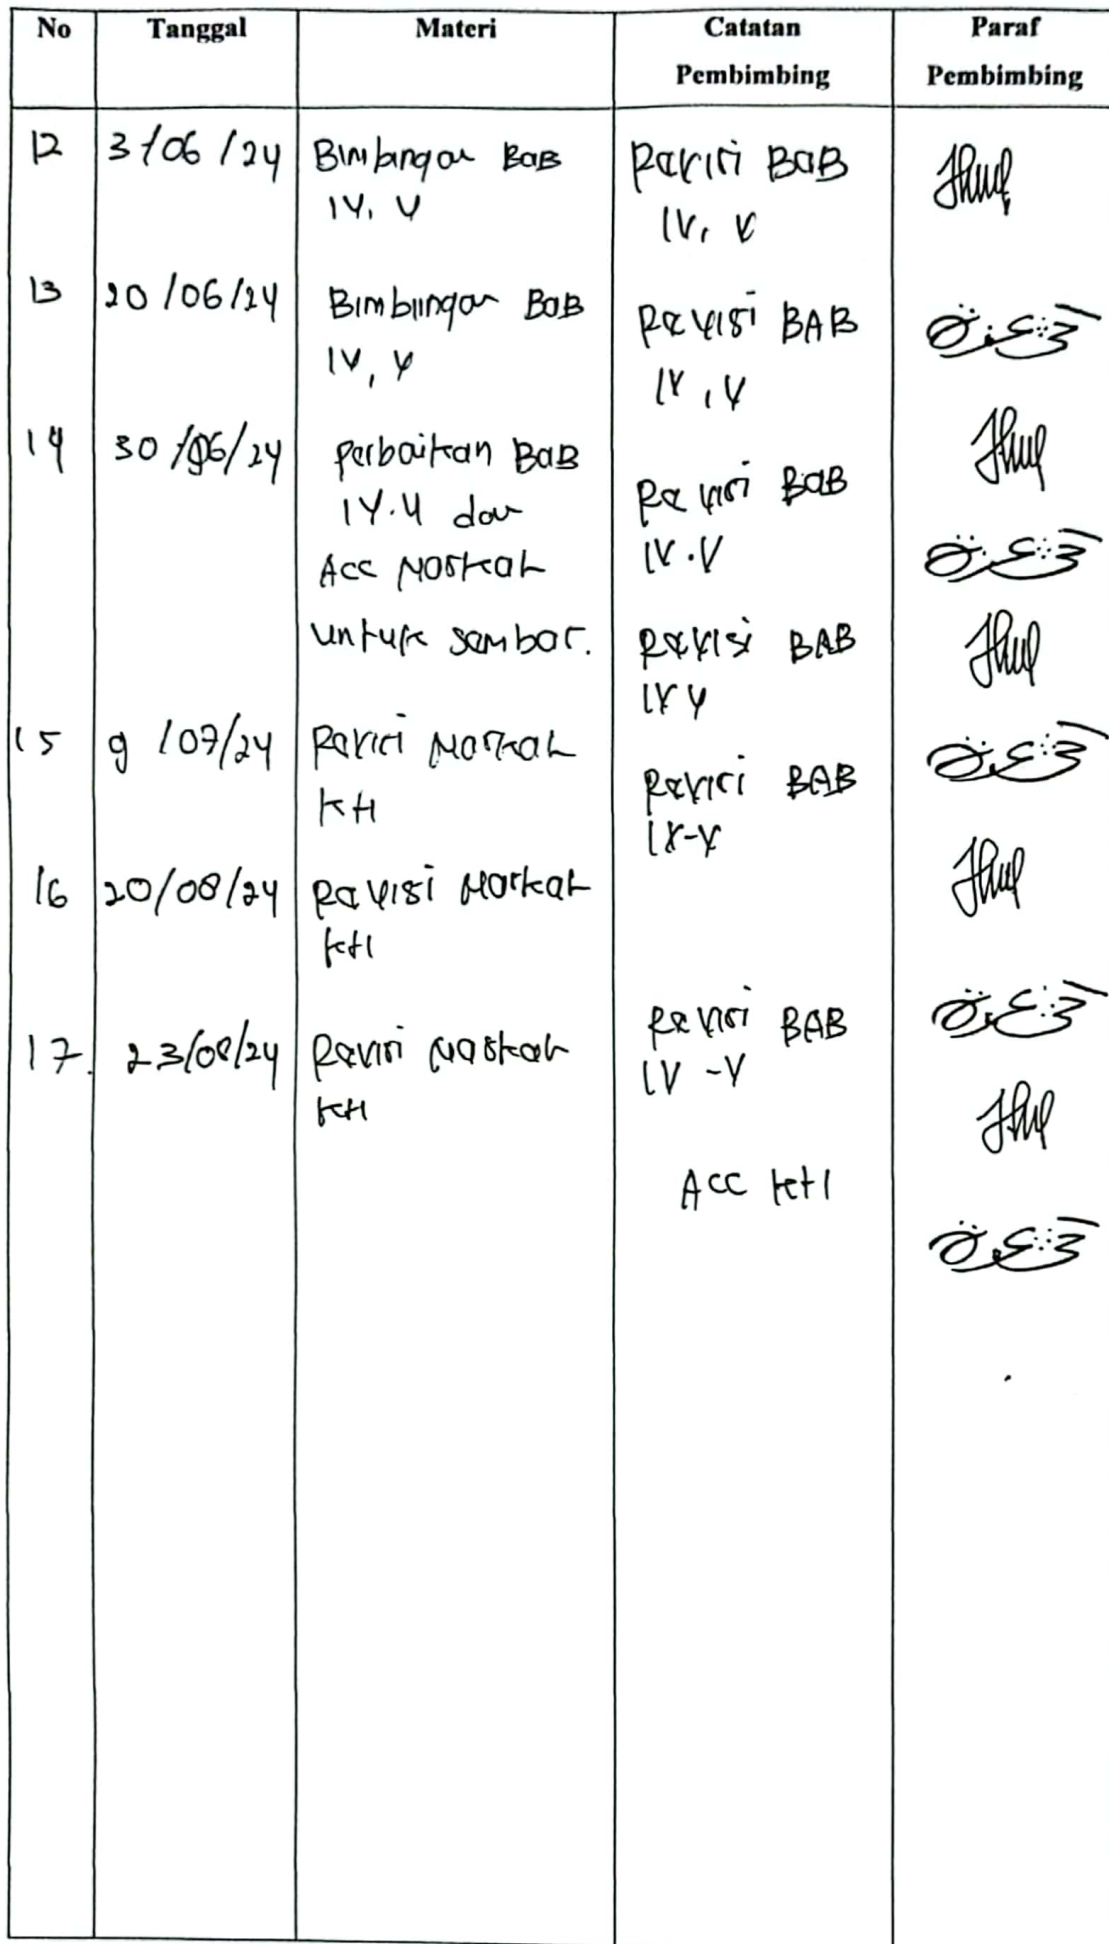 No Tanggal Materi Catatan Pembimbing Paraf Pembimbing
12 3/06/24 Bimbingan BAB Revisi BAB
IV, V IV, V
13 20/06/24 Bimbingan BAB Revisi BAB
IV, V IV, V
14 30/06/24 Perbaikan BAB Revisi BAB
IV.V dan IV.V
Acc Naskah
untuk sembar. Revisi BAB
IV V
15 9/07/24 Revisi Naskah Revisi BAB
KTI IV-V
16 20/08/24 Revisi Naskah
KTI
17. 23/08/24 Revisi Naskah Revisi BAB
KTI IV-V
Acc KTI